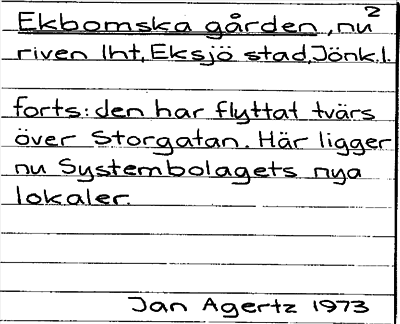 2
Ekbomska gården, nu
riven Iht, Eksjö stad, Jönk.l.
forts: den har flyttat tvärs
över Storgatan. Här ligger
nu Systembolagets nya
lokaler.
Jan Agertz 1973